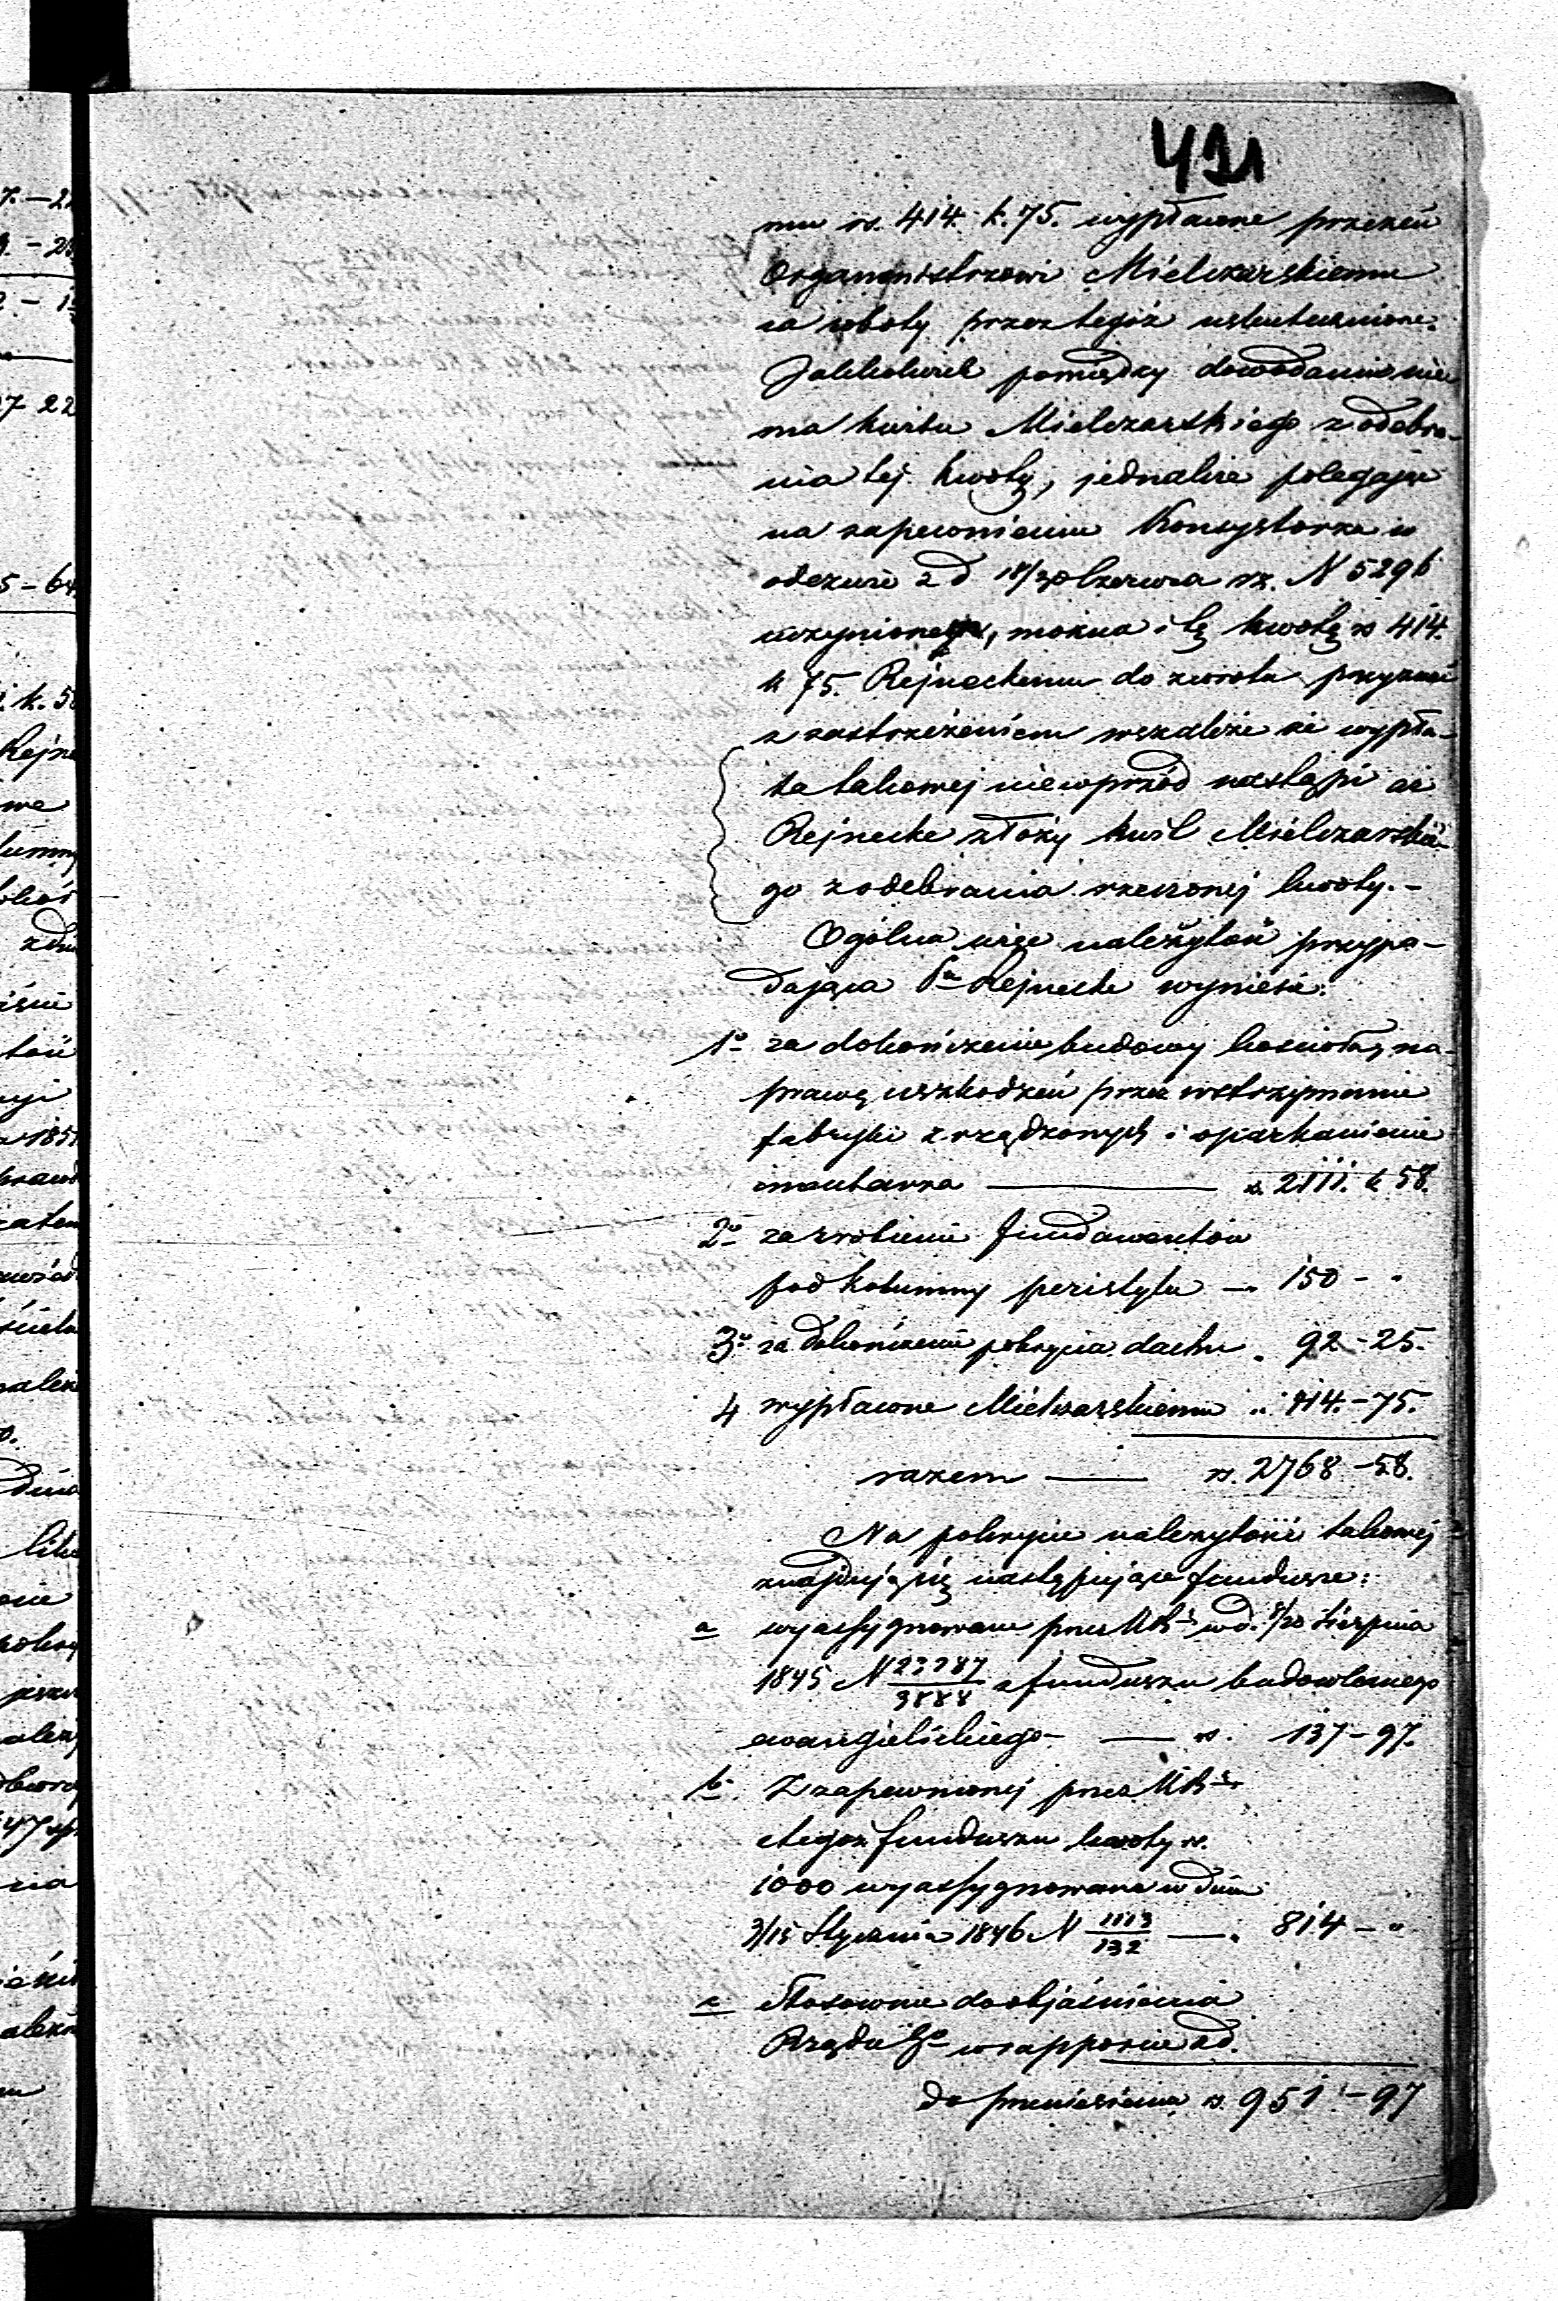 421
mu rs. 414. k. 75. wypłacone przezeń
Organmistrzowi Mielczarskiemu
za roboty przez tegoż uskutecznione.
Jakkolwiek pomiędzy dowodami nie
ma kwitu Mielczarskiego z odebra-
nia tej kwoty, jednakże polegając
na zapewnieniu Konsystorza w
odezwie z d 18/30 Czerwca rz. N 5296
uczynionem, można i tę kwotę rs 414.
k 75. Rejneckemu do zwrotu przyznać
z zastrzeżeniem wszakże że wypła-
ta takowej niewprzód nastąpi aż
Rejnecke złoży kwit Mielczarskie-
go z odebrania rzeczonej kwoty.-
Ogólna więc należytość przypa-
dająca Pa Rejnecke wyniesie:
1o za dokończenie budowy kościoła, na-
prawę uszkodzeń przez wstrzymanie
fabryki zrządzonych i oparkanienie
cmentarza — rs. 2111. k 58.
2o za zrobienie fundamentów
pod kolumny peristylu — " 150 - "
3o za dokończenie pokrycia dachu " 92 - 25.
4 wypłacone Mielczarskiemu " 414. - 75.
razem — rs. 2768 - 58.
Na pokrycie należytości takowej
znajdują się następujące fundusze:
a wyassygnowane przez w d. 8/20 Sierpnia
1845 N 23287/9888 z funduszu budowlanego
ewangielickiego — rs. 137 - 97.
b. Z zapewnionej przez
z tegoż funduszu kwoty rs.
1000 wyassygnowane w dniu
3/15 Stycznia 1846 N 1113/132 — " 814 - "
c Stosownie do objaśnienia
Rządu Go w rapporcie z d.
do przeniesienia rs. 951 - 97